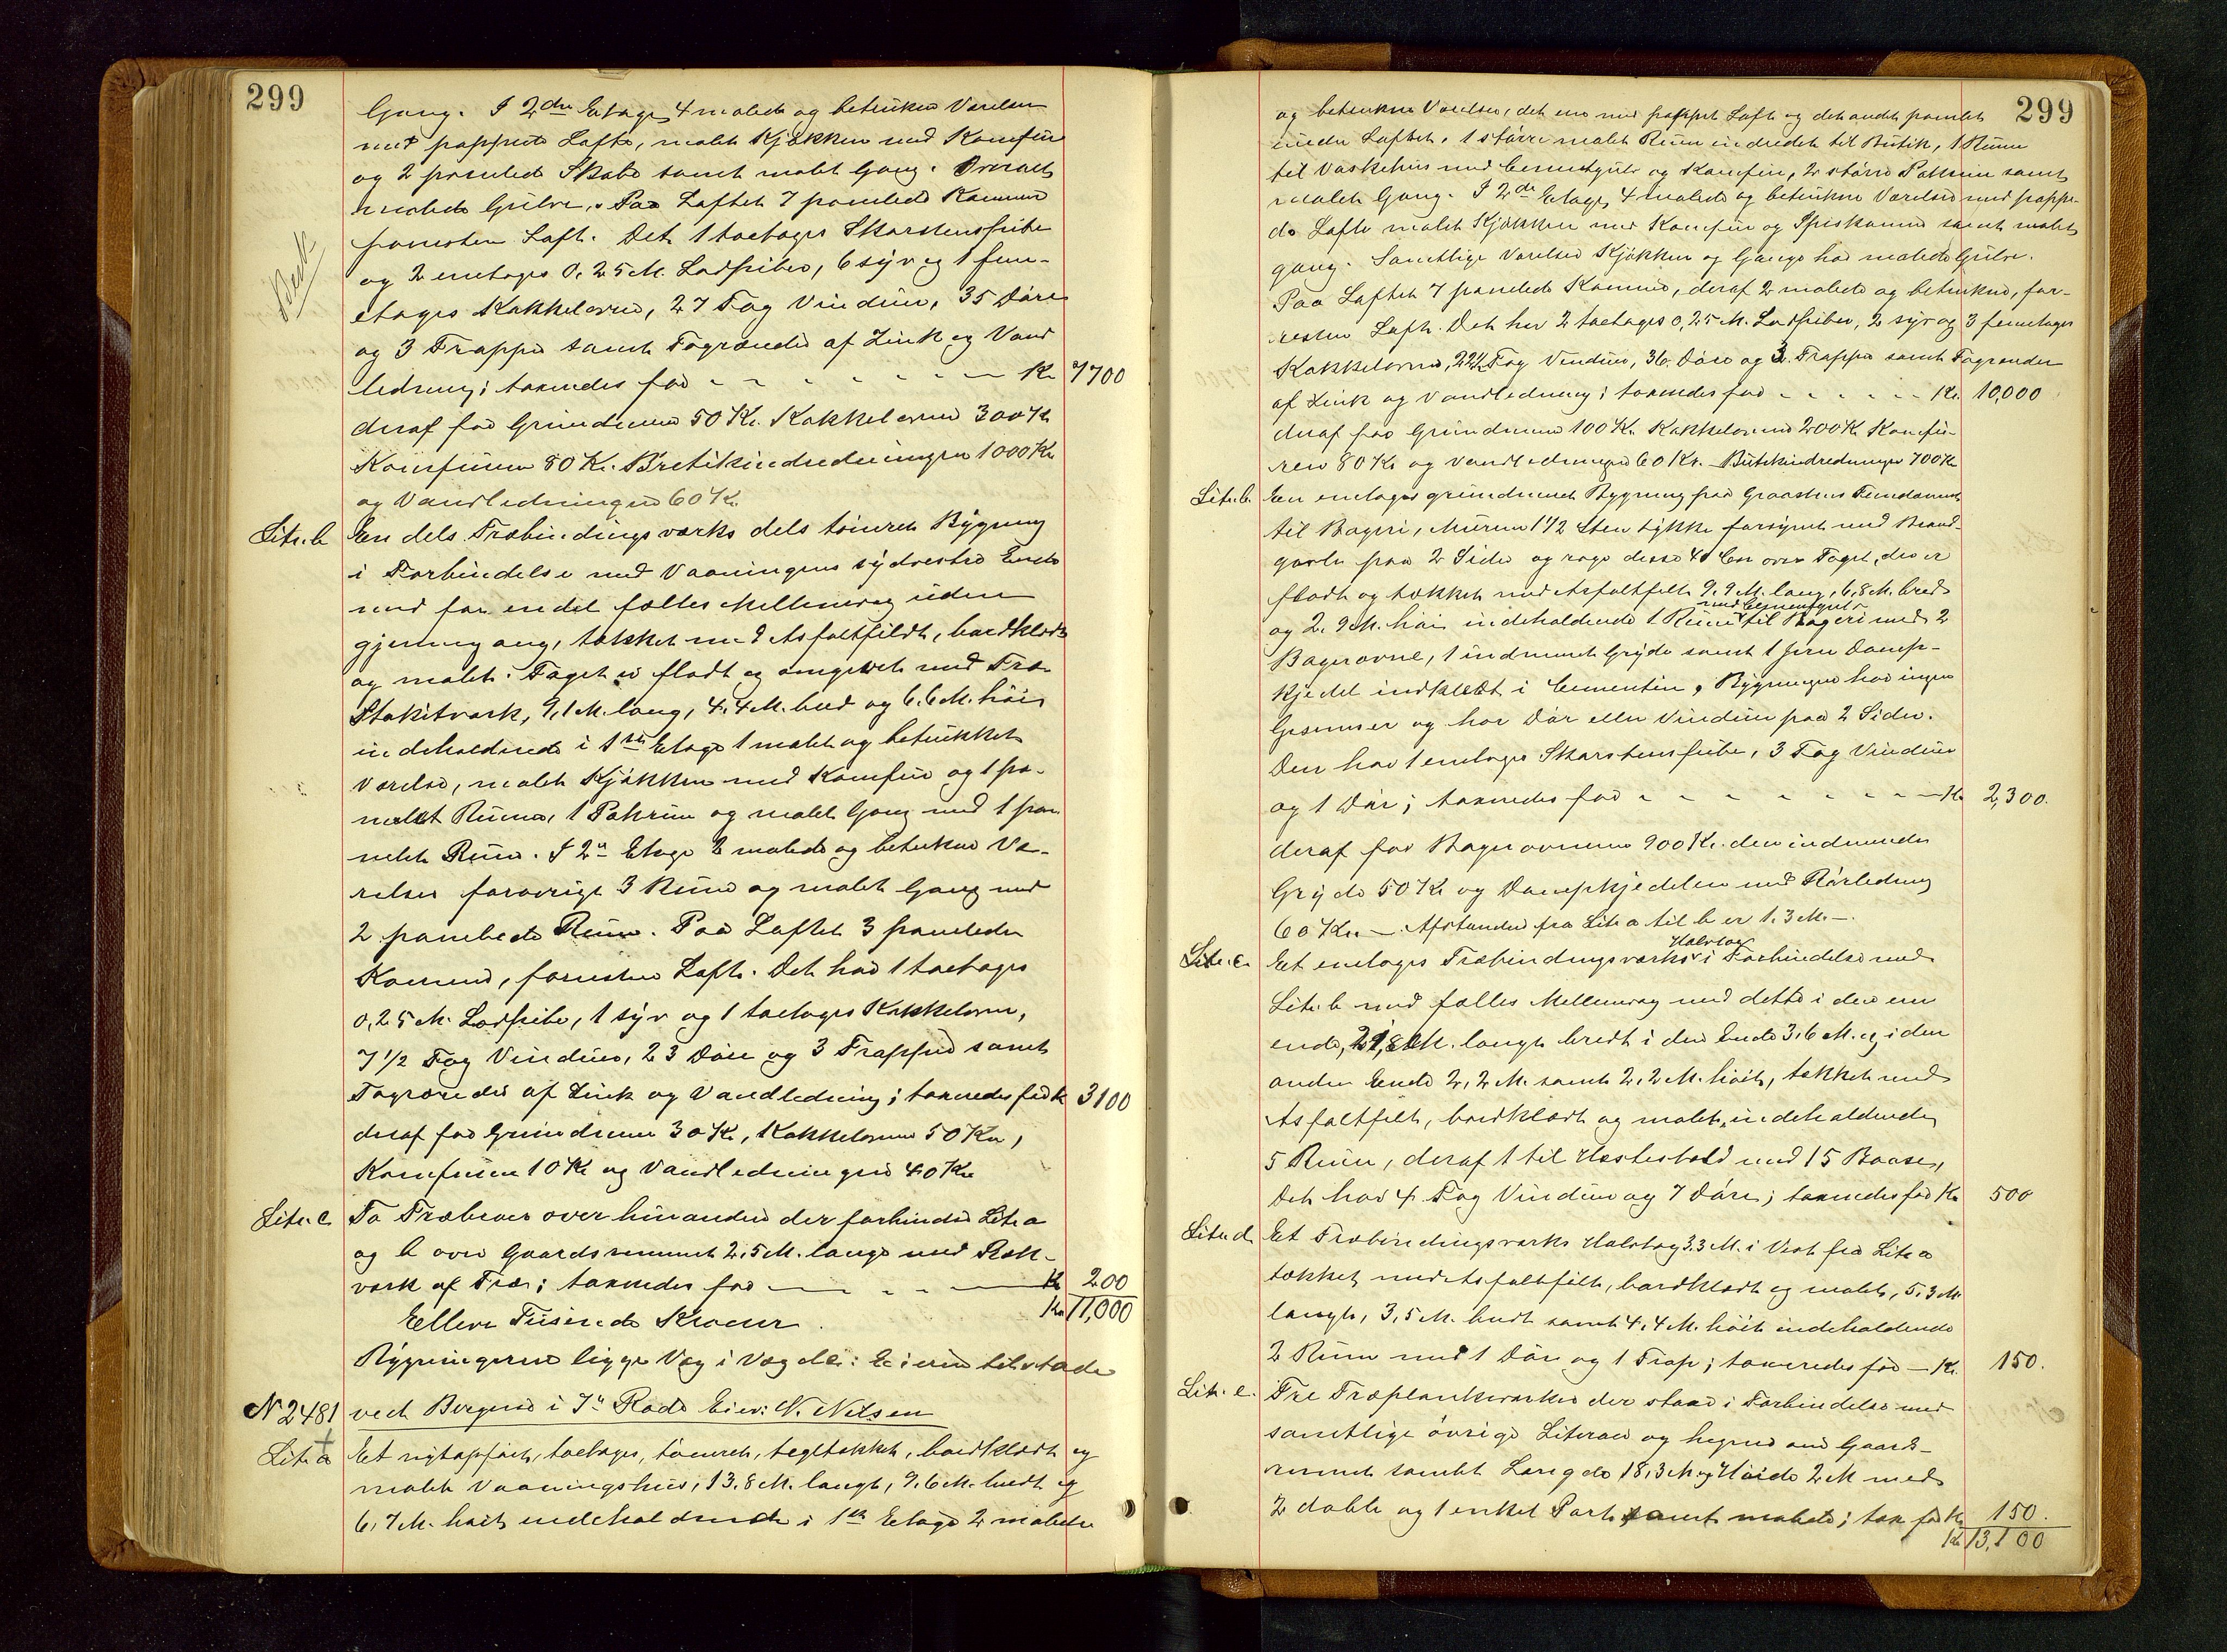 299
Gang. I 2den Etage 4 malede og betrukne Værelser
med pappede Lofte, malet Kjøkken med Komfur
og 2 panelede Skabe samt malet Gang. Overalt
malede Gulve. Paa Loftet 7 panelede Kammere
foresten Loft. Det 1 toetages Skorstenspibe
og 2 enetages 0,25 M. Lodpiber, 6 syv og 1 fem-
etages Kakkelovne, 27 Fag Vinduer, 35 Døre
og 3 Trapper samt Tagrender af Zink og Vand
ledning; taxeredes for - - - - Kr. 7700
deraf for Grundmuren 50 Kr. Kakkelovne 300 Kr
Komfuren 80 Kr. Butikindredningen 1000 Kr
og Vandledningen 60 Kr.
Litr. b En dels Træbindingsværks dels tømret Bygning
i Forbindelse med Vaaningens sydvestre Ende
med for en del fælles Mellemvæg uden
gjennemgang, tækket med Asfaltfildt, bordklædt
og malet. Taget er fladt og omgivet med Træ
Stakitværk, 9,1 M. lang, 4,4 M. bred og 6,6 M. høi
indeholdende i 1ste Etage 1 malet og betrukket
Værelse, malet Kjøkken med Komfur og 1 pa-
nelet Rum, 1 Pakrum og malet Gang med 1 pa-
nelet Rum. I 2n Etage 2 malede og betrukne Væ-
relser forøvrigt 3 Rum og malet Gang med
2 panelede Rum. Paa Loftet 3 panelede
Kammere, foresten Loft. Det har 1 toetages
0,25 M. Lodpibe, 1 syv og 1 toetages Kakkelovn,
7 1/2 Fag Vinduer, 23 Døre og 3 Trapper samt
Tagrender af Zink og Vandledning; taxeredes for Kr 3100
deraf for Grundmuren 30 Kr, Kakkelovne 50 Kr,
Komfuren 10 Kr og Vandledningen 40 Kr
Litr. c To Træbroer over hinanden der forbinder Litr a
og b over Gaardsrummet 2,5 M. lange med Ræk-
værk af Træ; taxeredes for - - - Kr 200
Elleve Tusinde Kroner. Kr 11,000
Bygningerne ligge Væg i Væg Eieren tilstede
N 2481 ved Bergene i 7n Rode Eier: N. Nilsen
Litr a Et nytopført, toetages, tømret, tegltækket, bordklædt og
malet Vaaningshus, 13,8 M. langt, 9,6 M. bredt og
6,7 M. høit indeholdende i 1ste Etage 2 malede
299
og betrukne Værelser, det ene med pappet Loft og det andet panelet
under Loftet, 1 større malet Rum indredet til Butik, 1 Rum
til Vaskehus med Cementgulv og Komfur, 2 større Pakrum samt
malet Gang. I 2de Etage 4 malede og betrukne Værelser med pappe-
de Lofte malet Kjøkken med Komfur og Spiskammer samt malet
gang. Samtlige Værelser Kjøkken og Gange har malede Gulve.
Paa Loftet 7 panelede Kammere, deraf 2 malede og betrukne, for-
resten Loft. Det har 2 toetages 0,25 M. Lodpiber, 2 syv og 3 femetages
Kakkelovne, 22 1/2 Fag Vinduer, 36 Døre og 3 Trapper samt Tagrender
af Zink og Vandledning; taxeredes for - - - Kr. 10,000
deraf for Grundmuren 100 Kr. Kakkelovne 200 Kr Komfu-
ren 80 Kr og Vandledningen 60 Kr. Butikindredningen 700 Kr
Litr. b. En enetages grundmuret Bygning paa Graastens Fundament
til Bageri, Muren 1 1/2 Sten tykke forsynet med Brand-
gavle paa 2 Sider og rage disse 40 Cm over Taget, der er
fladt og tækket med Asfaltfilt 9,9 M. lang, 6,8 M. bred
og 2,9 M. høi indeholdende 1 Rum med Cementgulv til Bageri med 2
Bagerovne, 1 indmuret Gryde samt 1 Jern Damp-
kjedel indklædt i Cementin, Bygningen har ingen
Gesimser og har Dør eller Vindue paa 2 Sider.
Den har 1 enetages Skorstenspibe, 3 Fag Vinduer
og 1 Dør; taxeredes for - - - Kr 2,300.
deraf for Bagerovnene 900 Kr. den indmurede
Gryde 50 Kr og Dampkjedelen med Rørledning
60 Kr. — Afstanden fra Litr a til b er 1,3 M. —
Litr. c. Et enetages Træbindingsværks Halvtag i Forbindelse med
Litr. b med fælles Mellemvæg med dette i den ene
ende, M. langt bredt i den Ende 3,6 M. og i den
anden Ende 2,2 M. samt 2,2 M. høit, tækket med
Asfaltfilt, bordklædt og malet, indeholdende
5 Rum, deraf 1 til Hestestald med 15 Baase,
Det har 4 Fag Vinduer og 7 Døre; taxeredes for Kr 500
Litr. d. Et Træbindingsværks Halvtag 3,3 M. i Vest fra Litr a
tækket med Asfaltfilt, bordklædt og malet, 5,3 M.
langt, 3,5 M. bredt samt 4,4 M. høit indeholdende
2 Rum med 1 Dør og 1 Trap; taxeredes for — Kr. 150.
Litr. e. Tre Træplankeværker der staar i Forbindelse med
samtlige øvrige Literaer og hegner om Gaards-
rummet samlet Længde 18,3 M. og Høide 2 M med
2 doble og 1 enkel Port samt malede; tax for Kr 150.
Kr 13,100